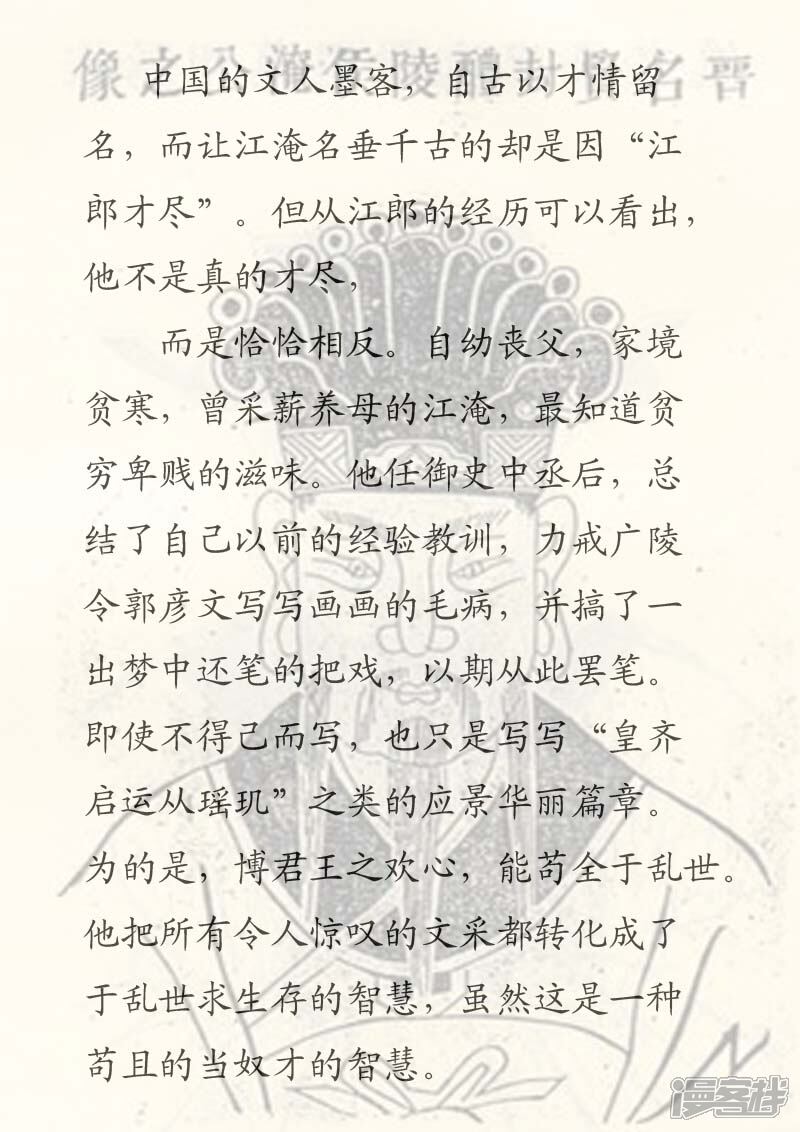 中国的文人墨客，自古以才情留
名，而让江淹名垂千古的却是因“江
郎才尽”。但从江郎的经历可以看出，
他不是真的才尽，
而是恰恰相反。自幼丧父，家境
贫寒，曾采薪养母的江淹，最知道贫
穷卑贱的滋味。他任御史中丞后，总
结了自己以前的经验教训，力戒广陵
令郭彦文写写画画的毛病，并搞了一
出梦中还笔的把戏，以期从此罢笔。
即使不得己而写，也只是写写“皇齐
启运从瑶玑”之类的应景华丽篇章。
为的是，博君王之欢心，能苟全于乱世。
他把所有令人惊叹的文采都转化成了
于乱世求生存的智慧，虽然这是一种
苟且的当奴才的智慧。
漫客栈